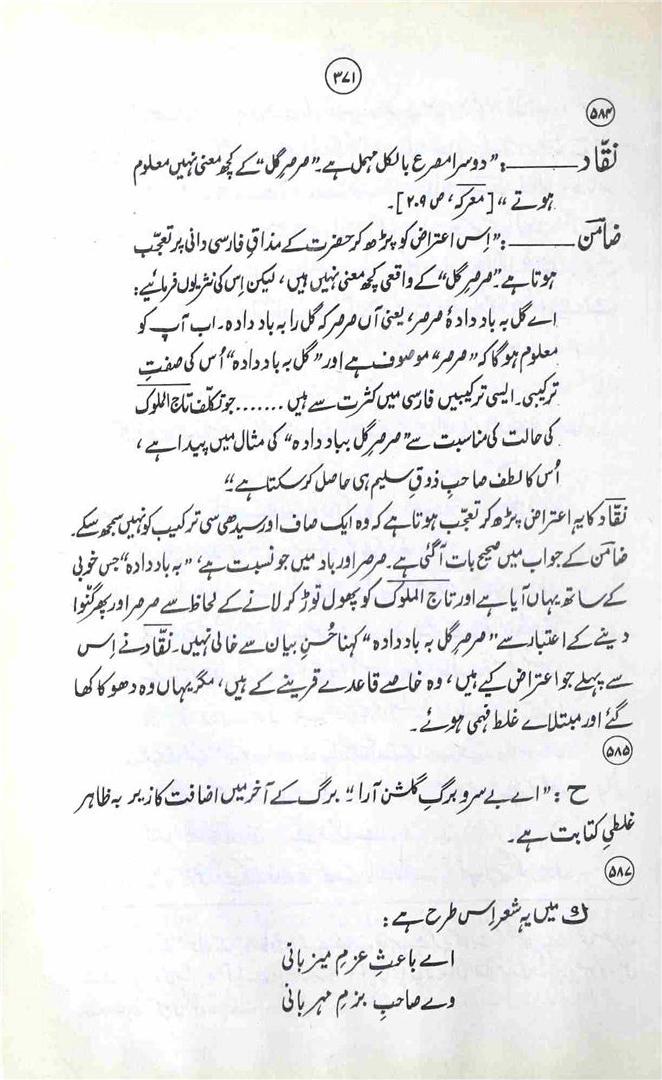 ۳۷۱
۵۸۴
نقّاد ــــــــ : ”دوسرا مصرع بالکل مہمل ہے۔ ”صرصرِ گل“ کے کچھ معنی نہیں معلوم
ہوتے“ [معرکہ، ص ۲۰۹]۔
ضامن ــــــــ : ”اِس اعتراض کو پڑھ کر حضرت کے مذاقِ فارسی دانی پر تعجّب
ہوتا ہے۔ ”صرصرِ گل“ کے واقعی کچھ معنی نہیں ہیں، لیکن اِس کی نثر یوں فرمائیے:
اے گل بہ باد دادۂ صرصر، یعنی آں صرصر کہ گل را بہ باد دادہ۔ اب آپ کو
معلوم ہوگا کہ ”صرصر“ موصوف ہے اور ”گل بہ باد دادہ“ اُس کی صفتِ
ترکیبی۔ ایسی ترکیبیں فارسی میں کثرت سے ہیں ....... جو تکلّف تاج الملوک
کی حالت کی مناسبت سے ”صرصرِ گل بباد دادہ“ کی مثال میں پیدا ہے،
اُس کا لطف صاحبِ ذوقِ سلیم ہی حاصل کر سکتا ہے“
نقّاد کا یہ اعتراض پڑھ کر تعجّب ہوتا ہے کہ وہ ایک صاف اور سیدھی سی ترکیب کو نہیں سمجھ سکے۔
ضامن کے جواب میں صحیح بات آگئی ہے۔ صرصر اور باد میں جو نسبت ہے، ”بہ باد دادہ“ جس خوبی
کے ساتھ یہاں آیا ہے اور تاج الملوک کو پھول توڑ کر لانے کے لحاظ سے صرصر اور پھر گنوا
دینے کے اعتبار سے ”صرصرِ گل بہ باد دادہ“ کہنا حُسنِ بیان سے خالی نہیں۔ نقّاد نے اِس
سے پہلے جو اعتراض کیے ہیں، وہ خاصے قاعدے قرینے کے ہیں، مگر یہاں وہ دھوکا کھا
گئے اور مبتلاے غلط فہمی ہوئے۔
۵۸۵
ح : ”اے بے سر و برگِ گلشن آرا“۔ برگ کے آخر میں اضافت کا زیر بہ ظاہر
غلطیِ کتابت ہے۔
۵۸۷
میں یہ شعر اس طرح ہے :
اے باعثِ عزمِ میزبانی
وے صاحبِ بزمِ مہربانی